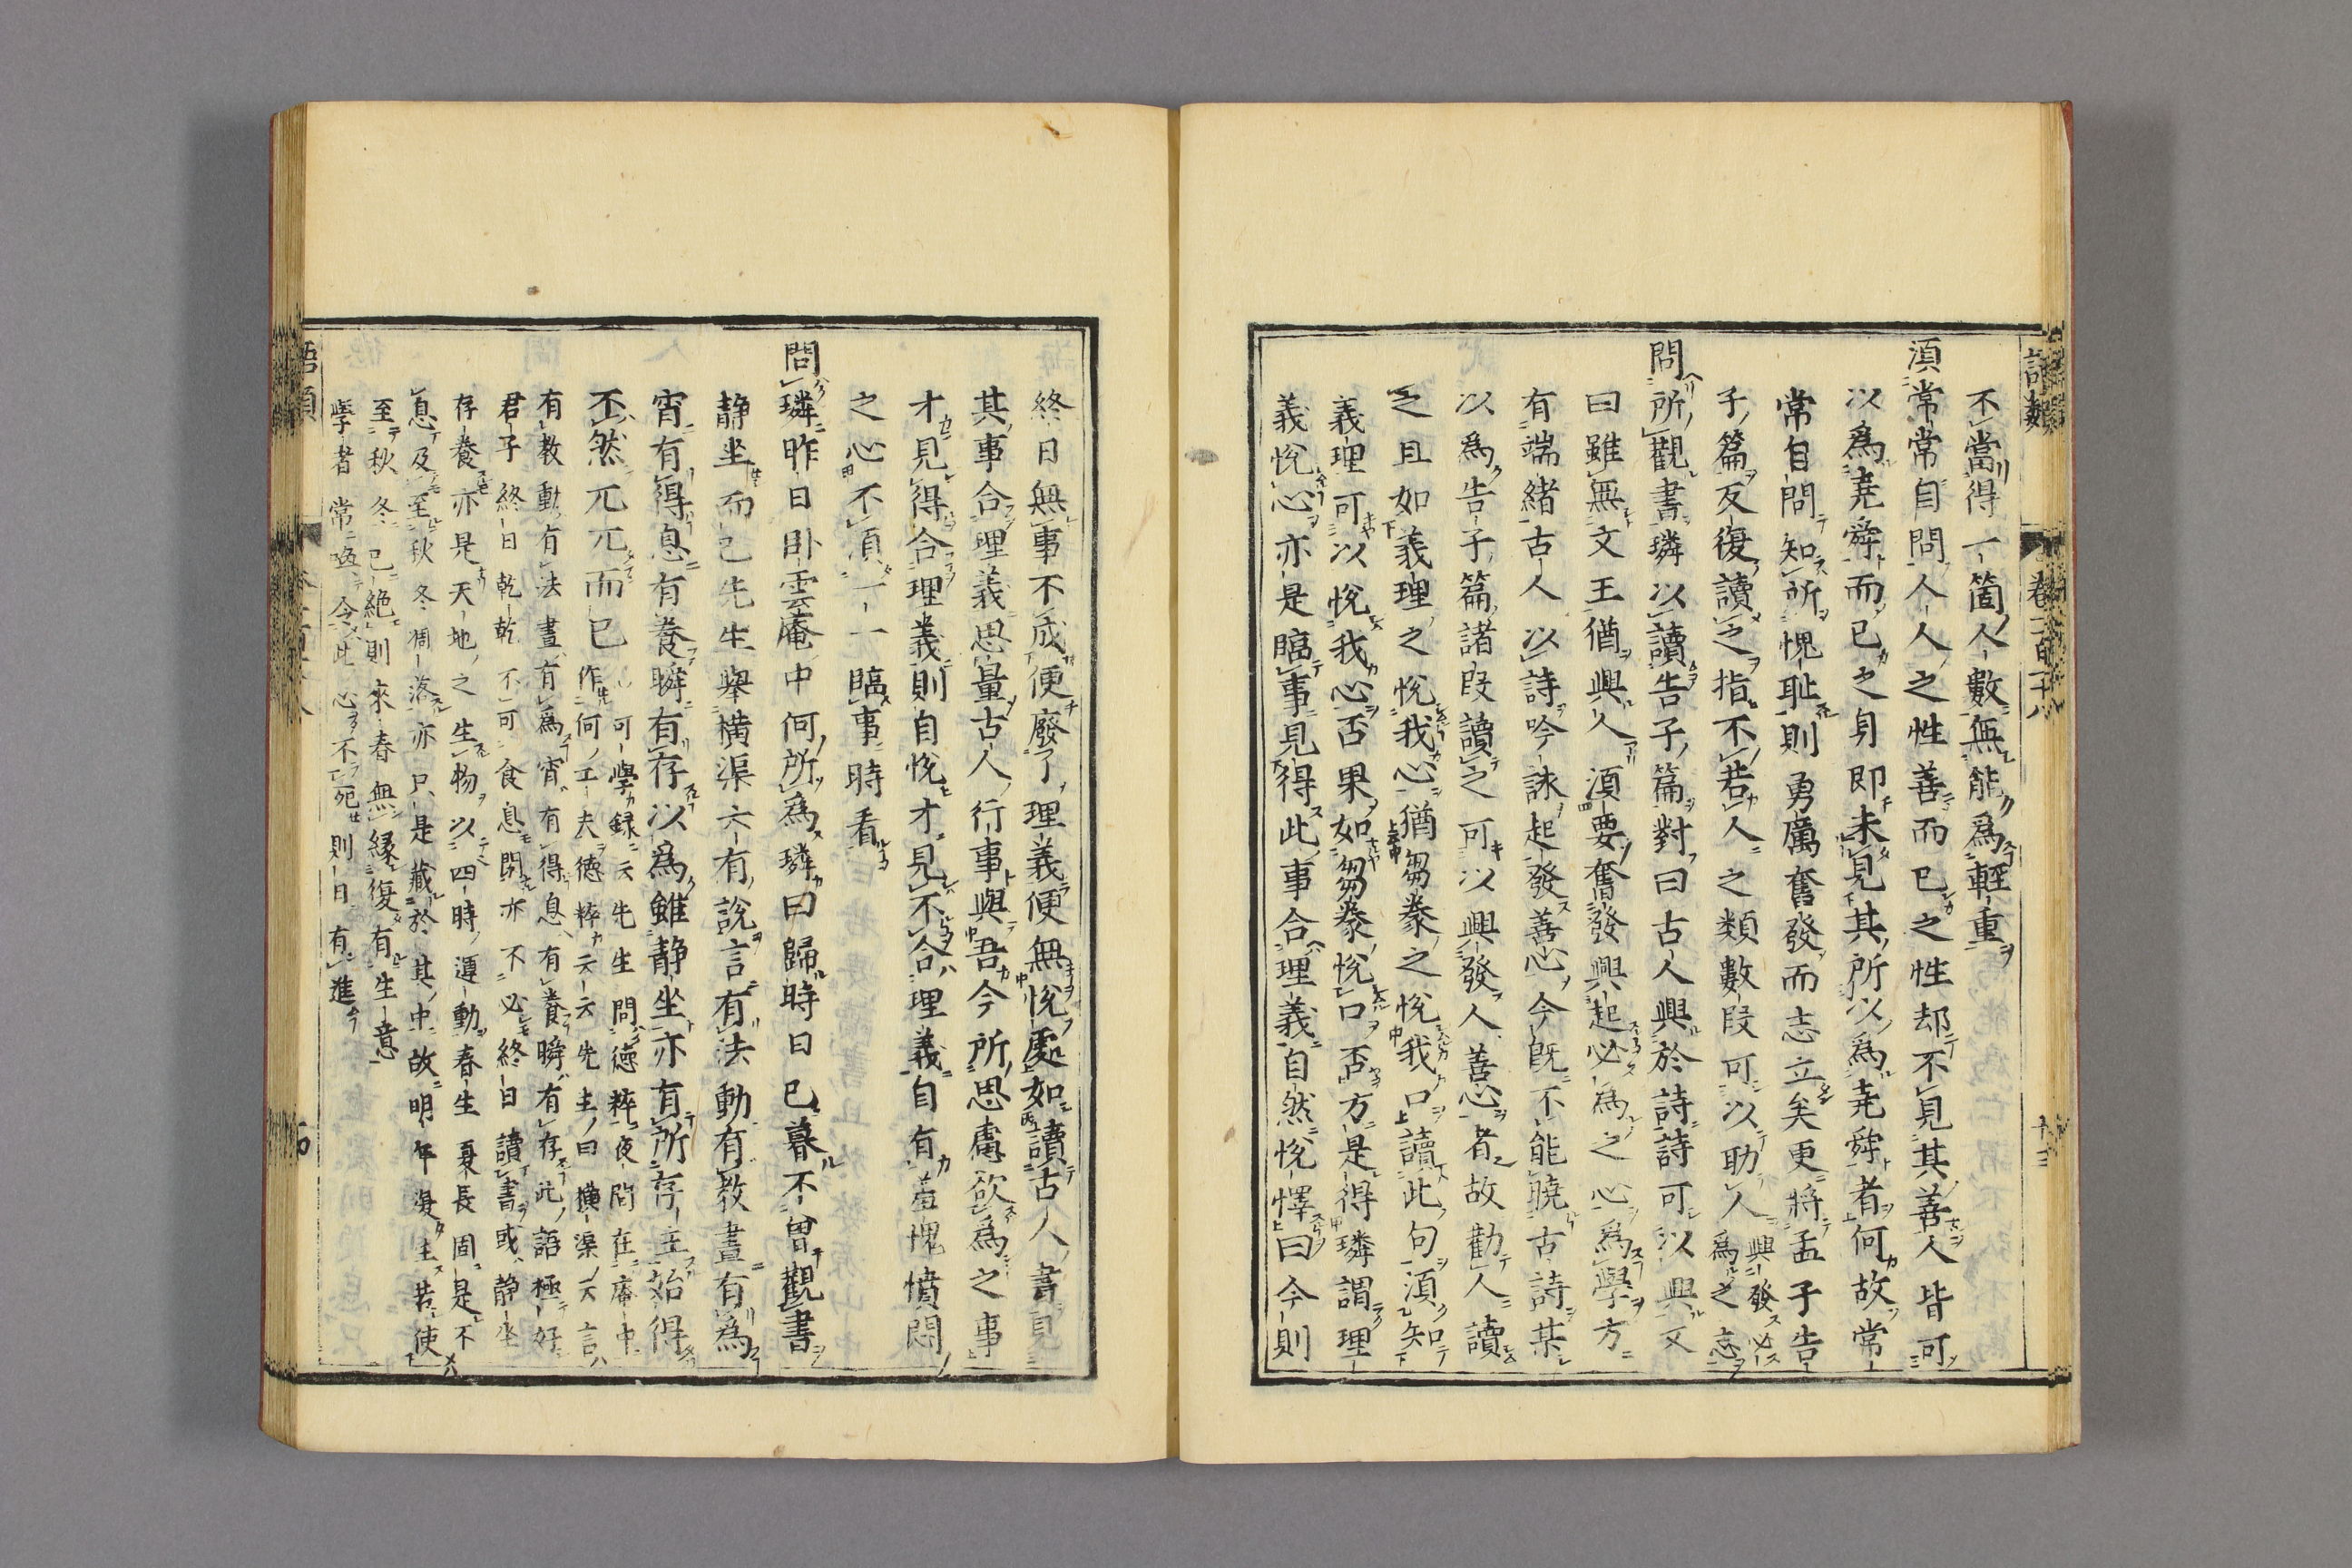 語類 卷一百十八 十三
不當得一箇人數無能爲輕重
湏常常自問人人之性善而已之性却不見其善人皆可
以爲堯舜而已之身即未見其所以爲堯舜者何故常
常自問知所愧耻則勇厲奮發而志立矣更將孟子告
子篇反復讀之指不若人之類數段可以助人興發必
爲之志
問所觀書璘以讀告子篇對曰古人興於詩詩可以興又
曰雖無文王猶興人湏要奮發興起必爲之心爲學方
有端緒古人以詩吟詠起發善心今既不能曉古詩某
以爲告子篇諸段讀之可以興發人善心者故勸人讀
之且如義理之悅我心猶芻豢之悅我口讀此句湏知
義理可以悅我心否果如芻豢悅口否方是得璘謂理
義悅心亦是臨事見得此事合理義自然悅懌曰今則
終日無事不成便廢了理義便無悅處如讀古人書見
其事合理義思量古人行事與吾今所思慮欲爲之事
才見得合理義則自悅才見不合理義自有羞愧憤悶
之心不湏一一臨事時看
問璘昨日臥雲庵中何所爲璘曰歸時日已暮不曾觀書
静坐而已先生舉橫渠六有說言有法動有教晝有爲
宵有得息有養瞬有存以爲雖静坐亦有所存主始得
不然兀兀而已
可學録云先生問德粹夜間在庵中
作何工夫德粹云云先生曰橫渠云言
有教動有法晝有爲宵有得息有養瞬有存此語極好
君子終日乾乾不可食息閒亦不必終日讀書或静坐
存養亦是天地之生物以四時運動春生夏長固是不
息及至秋冬凋落亦只是藏於其中故明年復生若使
至秋冬已絶則來春無緣復有生意
學者常喚令此心不死則日有進
語類